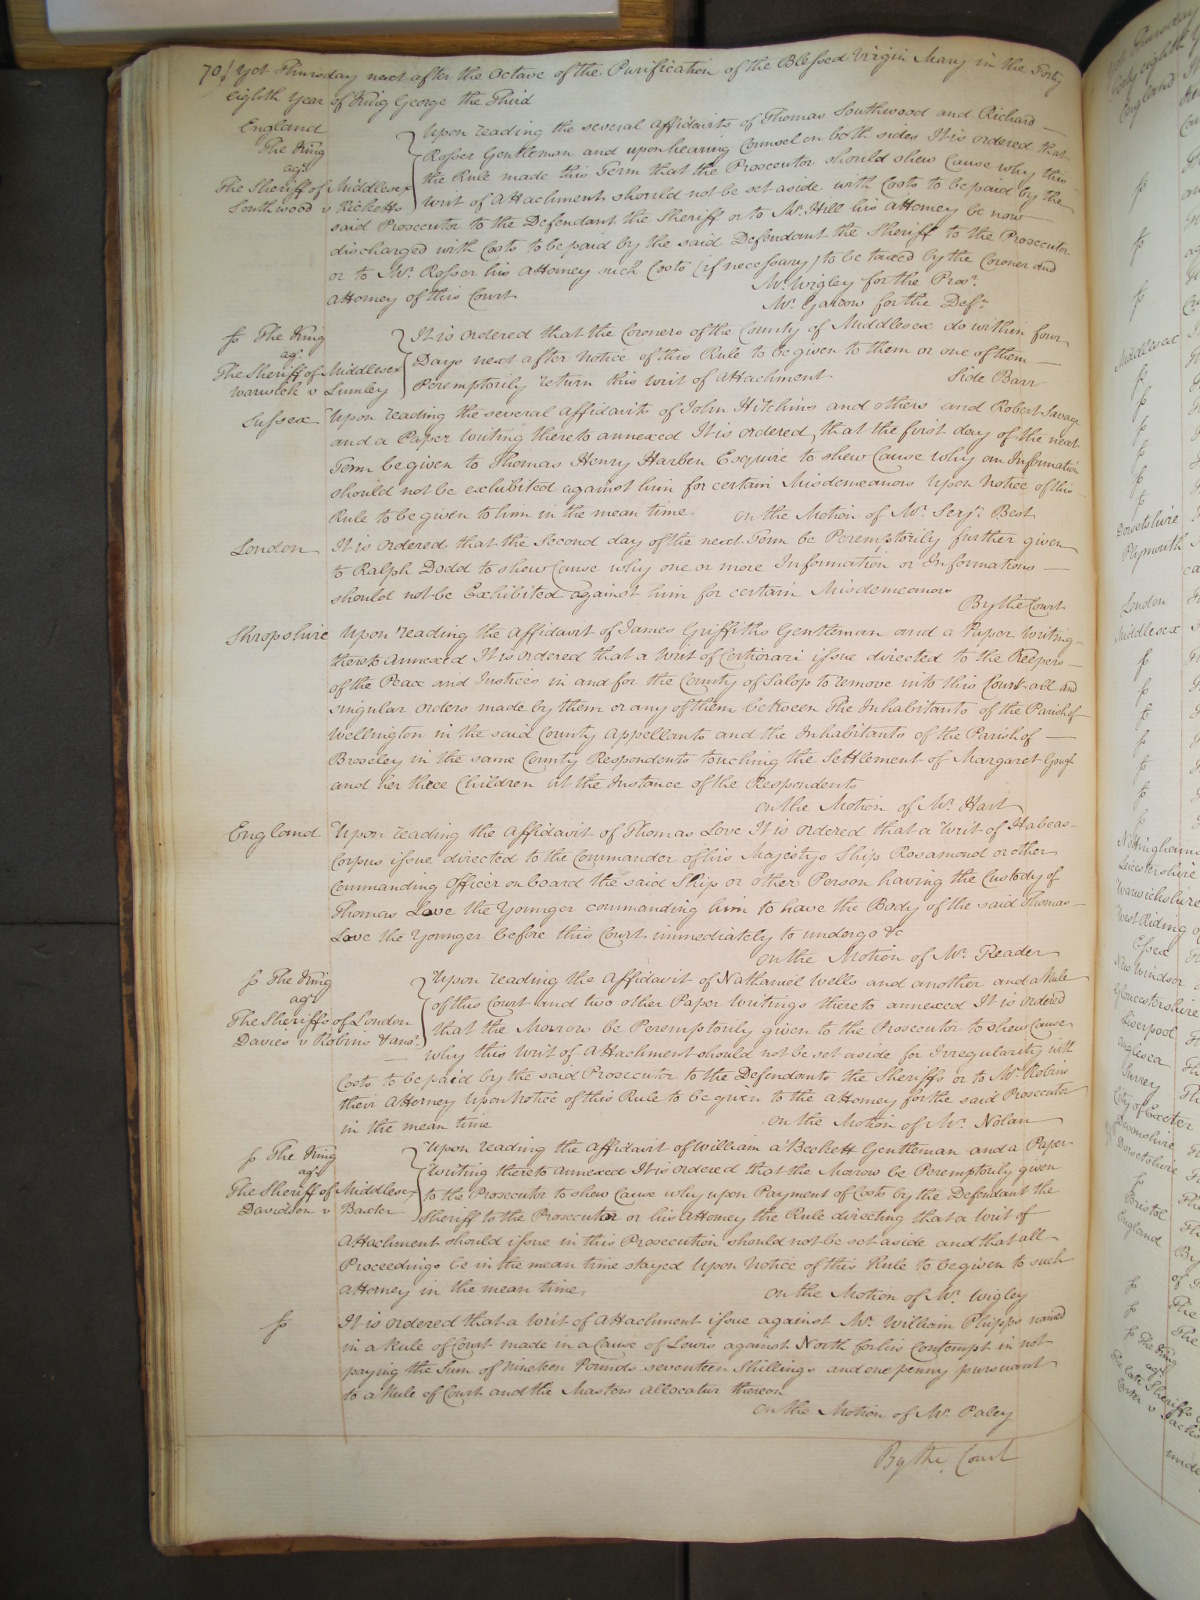 70 Yet Thursday next after the Octave of the Purification of the Blessed Virgin Mary in the Forty
eighth Year of King George the Third
England
The King
agt
The Sheriff of Middlesex
Southwood v Ricketts
Upon reading the several Affidavits of Thomas Southwood and Richard
Rosser Gentleman and upon hearing Counsel on both sides It is ordered that
the Rule made this Term that the Prosecutor should shew Cause why this
Writ of Attachment should not be set aside with Costs to be paid by the
said Prosecutor to the Defendant the Sheriff or to Mr. Hill his Attorney be now
discharged with Costs to be paid by the said Defendant the Sheriff to the Prosecutor
or to Mr. Rosser his Attorney such Costs (if necessary) to be taxed by the Coroner and
Attorney of this Court
Mr. Wigley for the Prosr.
Mr. Garrow for the Deft.
The King
agt.
The Sheriff of Middlesex
Warwick v Lumley
It is ordered that the Coroners of the County of Middlesex do within four
Days next after Notice of this Rule to be given to them or one of them
Peremptorily return this Writ of Attachment
Side Barr
Sussex Upon reading the several Affidavits of John Hitchins and others and Robert Savage
and a Paper Writing thereto annexed It is ordered that the first day of the next
Term be given to Thomas Henry Harben Esquire to shew Cause why an Information
should not be exhibited against him for certain Misdemeanors Upon Notice of this
Rule to be given to him in the mean time
On the Motion of Mr. Serjt. Best
London It is ordered that the Second day of the next Term be Peremptorily further given
to Ralph Dodd to shew Cause why one or more Information or Informations
should not be Exhibited against him for certain Misdemeanors
By the Court
Shropshire Upon reading the Affidavit of James Griffiths Gentleman and a Paper Writing
thereto annexed It is ordered that a Writ of Certiorari issue directed to the Keepers
of the Peace and Justices in and for the County of Salop to remove into this Court all and
singular orders made by them or any of them between The Inhabitants of the Parish of
Wellington in the said County Appellants and the Inhabitants of the Parish of
Broseley in the same County Respondents touching the Settlement of Margaret Gough
and her three Children At the Instance of the Respondents
On the Motion of Mr. Hart
England Upon reading the Affidavit of Thomas Love It is ordered that a Writ of Habeas
Corpus issue directed to the Commander of his Majestys Ship Rosamond or other
Commanding Officer on board the said Ship or other Person having the Custody of
Thomas Love the Younger commanding him to have the Body of the said Thomas
Love the Younger before this Court immediately to undergo &c
On the Motion of Mr. Reader
The King
agt
The Sheriffs of London
Davies v Robins & anor.
Upon reading the Affidavit of Nathaniel Wells and another and a Rule
of this Court and two other Paper Writings thereto annexed It is ordered
that the Morrow be Peremptorily given to the Prosecutor to shew Cause
why this Writ of Attachment should not be set aside for Irregularity with
Costs to be paid by the said Prosecutor to the Defendants the Sheriffs or to Mr. Robins
their Attorney Upon Notice of this Rule to be given to the Attorney for the said Prosecutor
in the mean time
On the Motion of Mr. Nolan
The King
agt
The Sheriff of Middlesex
Davidson v Baxter
Upon reading the Affidavit of William a'Beckett Gentleman and a Paper
Writing thereto annexed It is ordered that the Morrow be Peremptorily given
to the Prosecutor to shew Cause why upon Payment of Costs by the Defendant the
Sheriff to the Prosecutor or his Attorney the Rule directing that a Writ of
Attachment should issue in this Prosecution should not be set aside and that all
Proceedings be in the mean time stayed Upon Notice of this Rule to be given to such
Attorney in the mean time
On the Motion of Mr. Wigley
It is ordered that a Writ of Attachment issue against Mr. William Phipps named
in a Rule of Court made in a Cause of Lewis against North for his Contempt in not
paying the Sum of Nineteen Pounds seventeen Shillings and one penny pursuant
to a Rule of Court and the Masters Allocatur thereon
On the Motion of Mr. Paley
By the Court
England
Middlesex
Dorsetshire
Plymouth
London
Middlesex
Leicestershire
Warwickshire
West Riding of
Essex
New Windsor
Gloucestershire
Liverpool
Anglesea
Surrey
City of Exeter
Devonshire
Dorsetshire
Bristol
England
The King
agt
The late Sheriffs